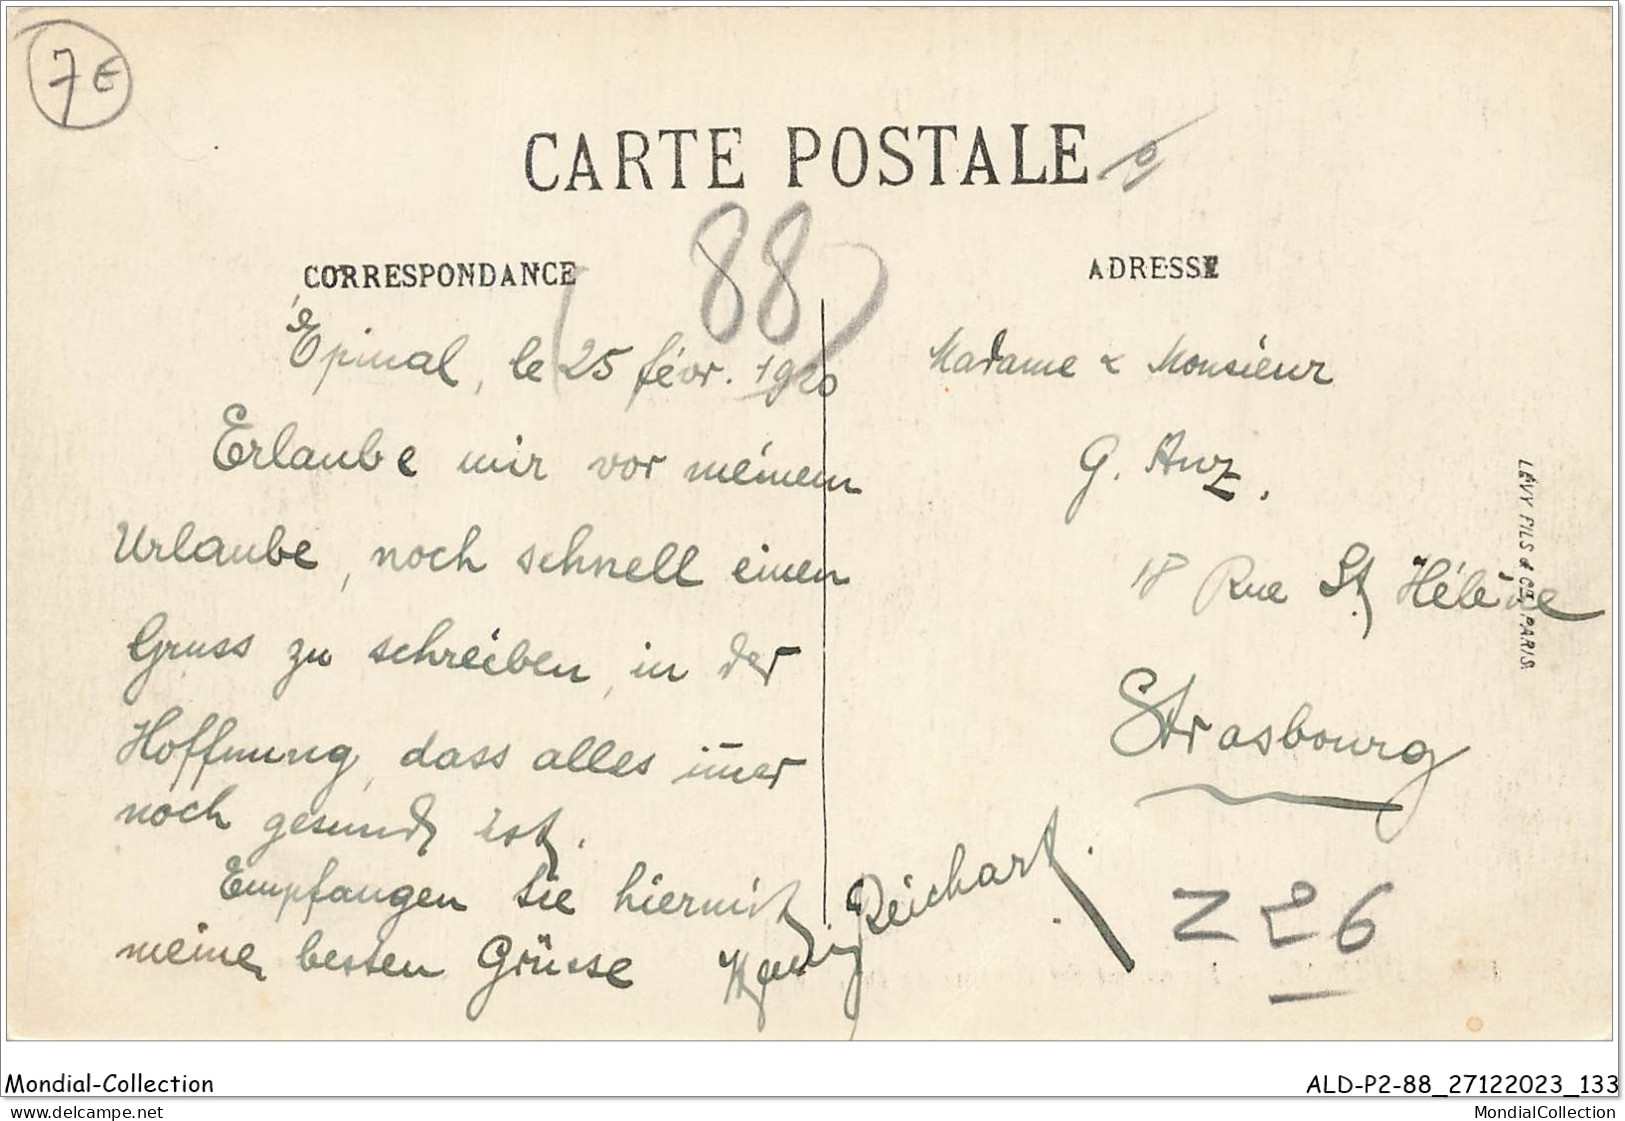 7€
CARTE POSTALE
88
CORRESPONDANCE
Épinal, le 25 févr. 1920
Erlaube mir vor meinem
Urlaube, noch schnell einen
Gruss zu schreiben, in der
Hoffnung, dass alles im̅er
noch gesund ist.
Empfangen Sie hiermit
meine besten Grüsse
Reichart.
ADRESSE
Madame & Monsieur
G. Anz.
18 Rue St Hélène
Strasbourg
Z 26
LÉVY FILS & CIE, PARIS.
Mondial-Collection
ALD-P2-88_27122023_133
www.delcampe.net
MondialCollection